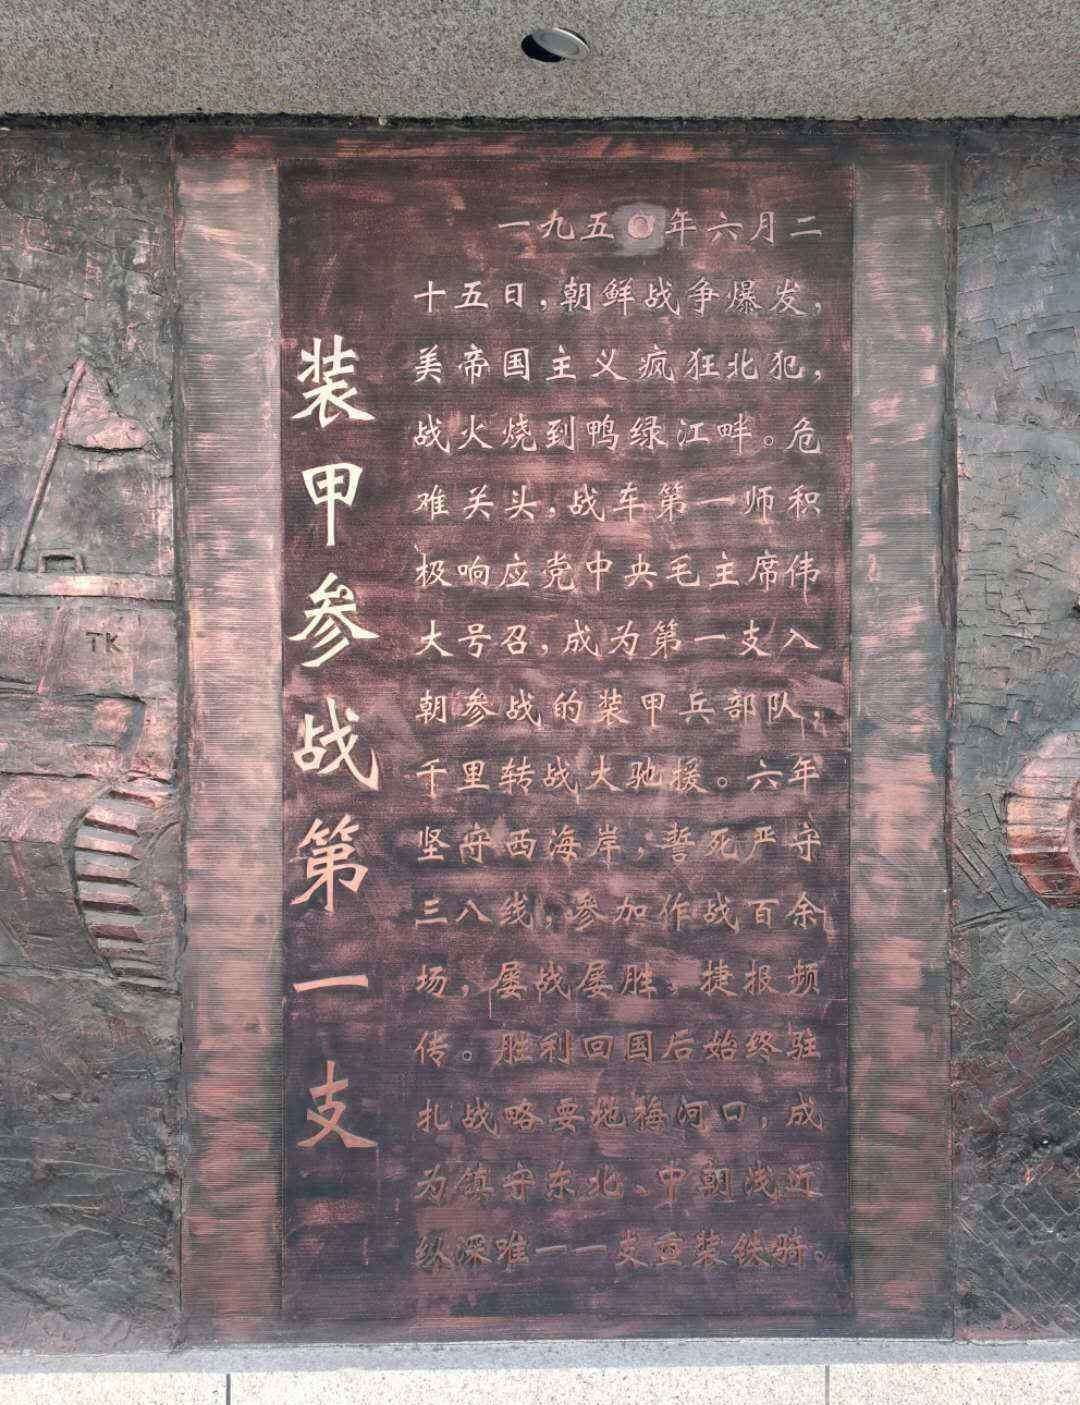 装甲参战第一支
一九五〇年六月二
十五日，朝鲜战争爆发，
美帝国主义疯狂北犯，
战火烧到鸭绿江畔。危
难关头，战车第一师积
极响应党中央毛主席伟
大号召，成为第一支入
朝参战的装甲兵部队，
千里转战大驰援。六年
坚守西海岸，誓死严守
三八线，参加作战百余
场，屡战屡胜，捷报频
传。胜利回国后始终驻
扎战略要地梅河口，成
为镇守东北、中朝浅近
纵深唯一一支重装铁骑。
TK